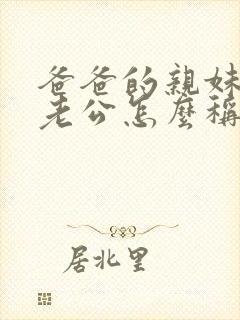 爸爸的親妹
老公怎麼稱
居北里